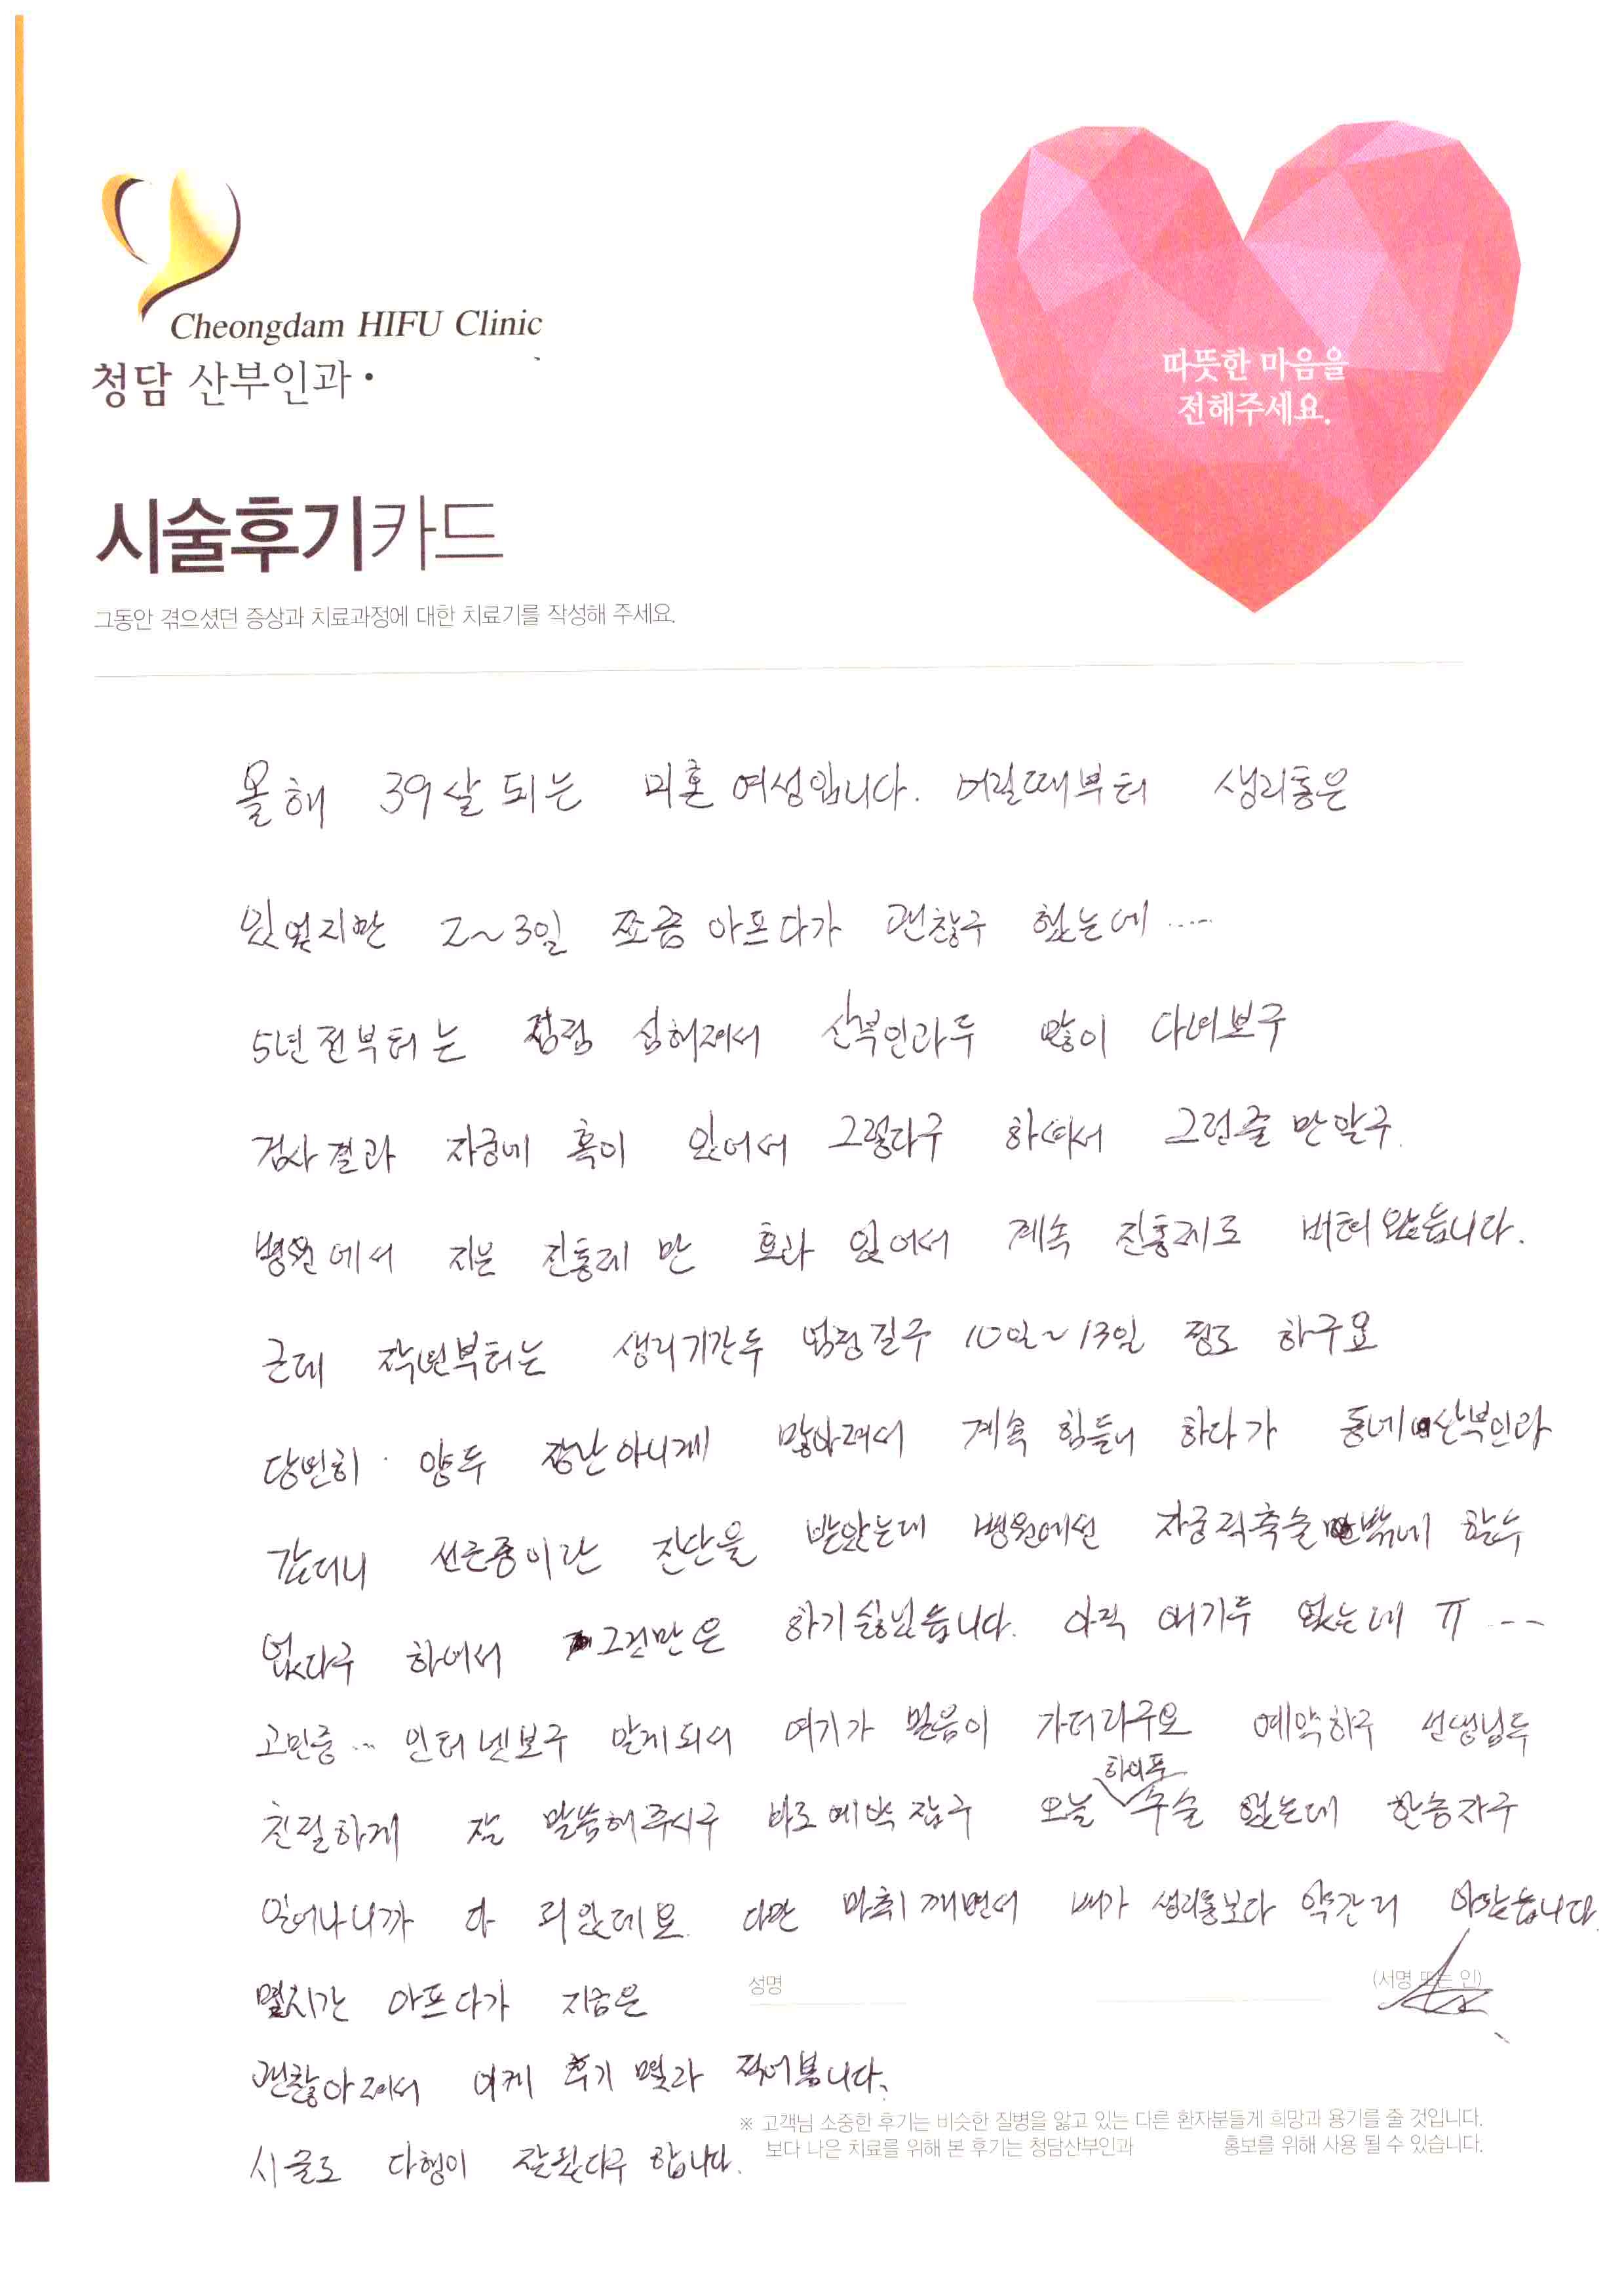 Cheongdam HIFU Clinic
청담 산부인과
따뜻한 마음을
전해주세요.
시술후기카드
그동안 겪으셨던 증상과 치료과정에 대한 치료기를 작성해 주세요.
올해 39살 되는 미혼 여성입니다. 어릴때부터 생리통은
있었지만 2~3일 쪼금 아프다가 괜찮구 했는데 .....
5년전부터는 점점 심해져서 산부인과두 많이 다녀보구
검사결과 자궁에 혹이 있어서 그렇다구 하셔서 그런줄만 알구
병원에서 지은 진통제만 효과 있어서 계속 진통제로 버텨왔습니다.
근데 작년부터는 생리기간두 엄청길구 10일~13일 정도 하구요
당연히 양두 장난아니게 많아져서 계속 힘들어 하다가 동네 산부인과
갔더니 선근종이란 진단을 받았는데 병원에선 자궁적출술밖에 할수
없다구 하여서 그것만은 하기싫었습니다. 아직 애기두 없는데 ㅠ --
고민중 ... 인터넷보구 알게되서 여기가 믿음이 가더라구요 예약하구 선생님두
친절하게 잘 말씀해주시구 바로 예약 잡구 오늘 하이푸 수술 했는데 한숨자구
일어나니까 다 되있데요. 다만 마취 깨면서 배가 생리통보다 약간더 아팠습니다.
몇시간 아프다가 지금은
괜찮아져서 이케 후기 몇자 적어봅니다.
시술도 다행이 잘됬다구 합니다.
성명
(서명 또는 인)
※ 고객님 소중한 후기는 비슷한 질병을 앓고 있는 다른 환자분들게 희망과 용기를 줄 것입니다.
보다 나은 치료를 위해 본 후기는 청담산부인과 홍보를 위해 사용 될 수 있습니다.